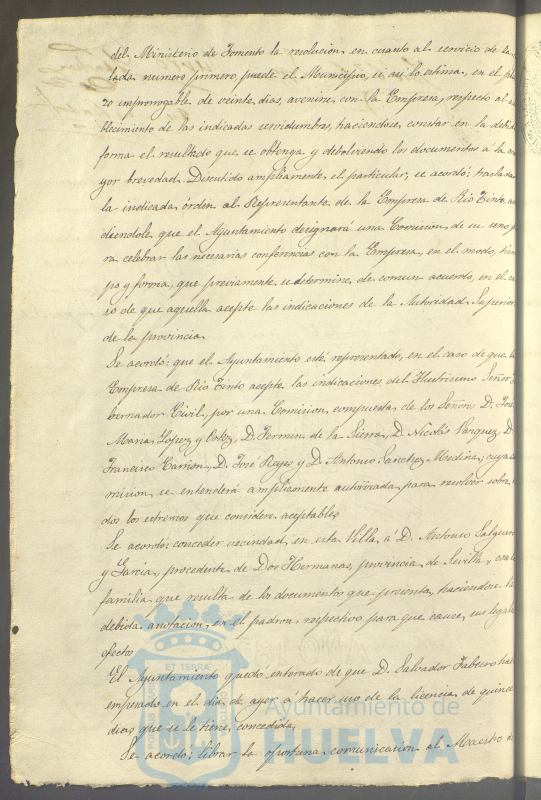 del Ministerio de Fomento la resolucion en cuanto al servicio de la
lada numero primero, puede el Municipio, si asi lo estima, en el pla
zo improrrogable de veinte dias, avenirse con la Empresa, respecto al
blecimiento de las indicadas servidumbres, haciendose constar en la debida
forma el resultado que se obtenga y debolviendo los documentos a la ma
yor brevedad. Discutido ampliamente el particular, se acordó: trasladar
la indicada órden al Representante de la Empresa de Rio Tinto, aña
diendole que el Ayuntamiento designará una Comision de su seno pa
ra celebrar las necesarias conferencias con la Empresa, en el modo, tiem
po y forma, que previamente se determine, de comun acuerdo, en el ca
so de que aquella acepte las indicaciones de la Autoridad Superior
de la provincia.
Se acordó: que el Ayuntamiento esté representado, en el caso de que la
Empresa de Rio Tinto acepte las indicaciones del Ilustrisimo Señor
bernador Civil, por una Comision compuesta de los Señores D. José
Maria Lopez y D. Fermin de la Sierra, D. Nicolás Vazquez, D.
Francisco Carrion, D. José Reyes y D. Antonio Sanchez Medina; cuya
mision, se entenderá ampliamente autorizada para resolver sobre
dos los estremos que considere aceptables.
Se acordó: conceder vecindad, en esta Villa, á D. Antonio Salguero
y Garcia, procedente de Dos Hermanas, provincia de Sevilla, con la
familia que resulta de los documentos que presenta, haciendose la
debida anotacion, en el padron respectivo para que cause sus legales
efectos.
El Ayuntamiento quedó enterado de que D. Salvador Tabero ha
empezado en el dia de ayer á hacer uso de la licencia de quince
dias que se le tiene concedida.
Se acordó: librar la oportuna comunicacion al Maestro
PORTUS MARIS ET TERRAE CUSTODIA
Ayuntamiento de
HUELVA